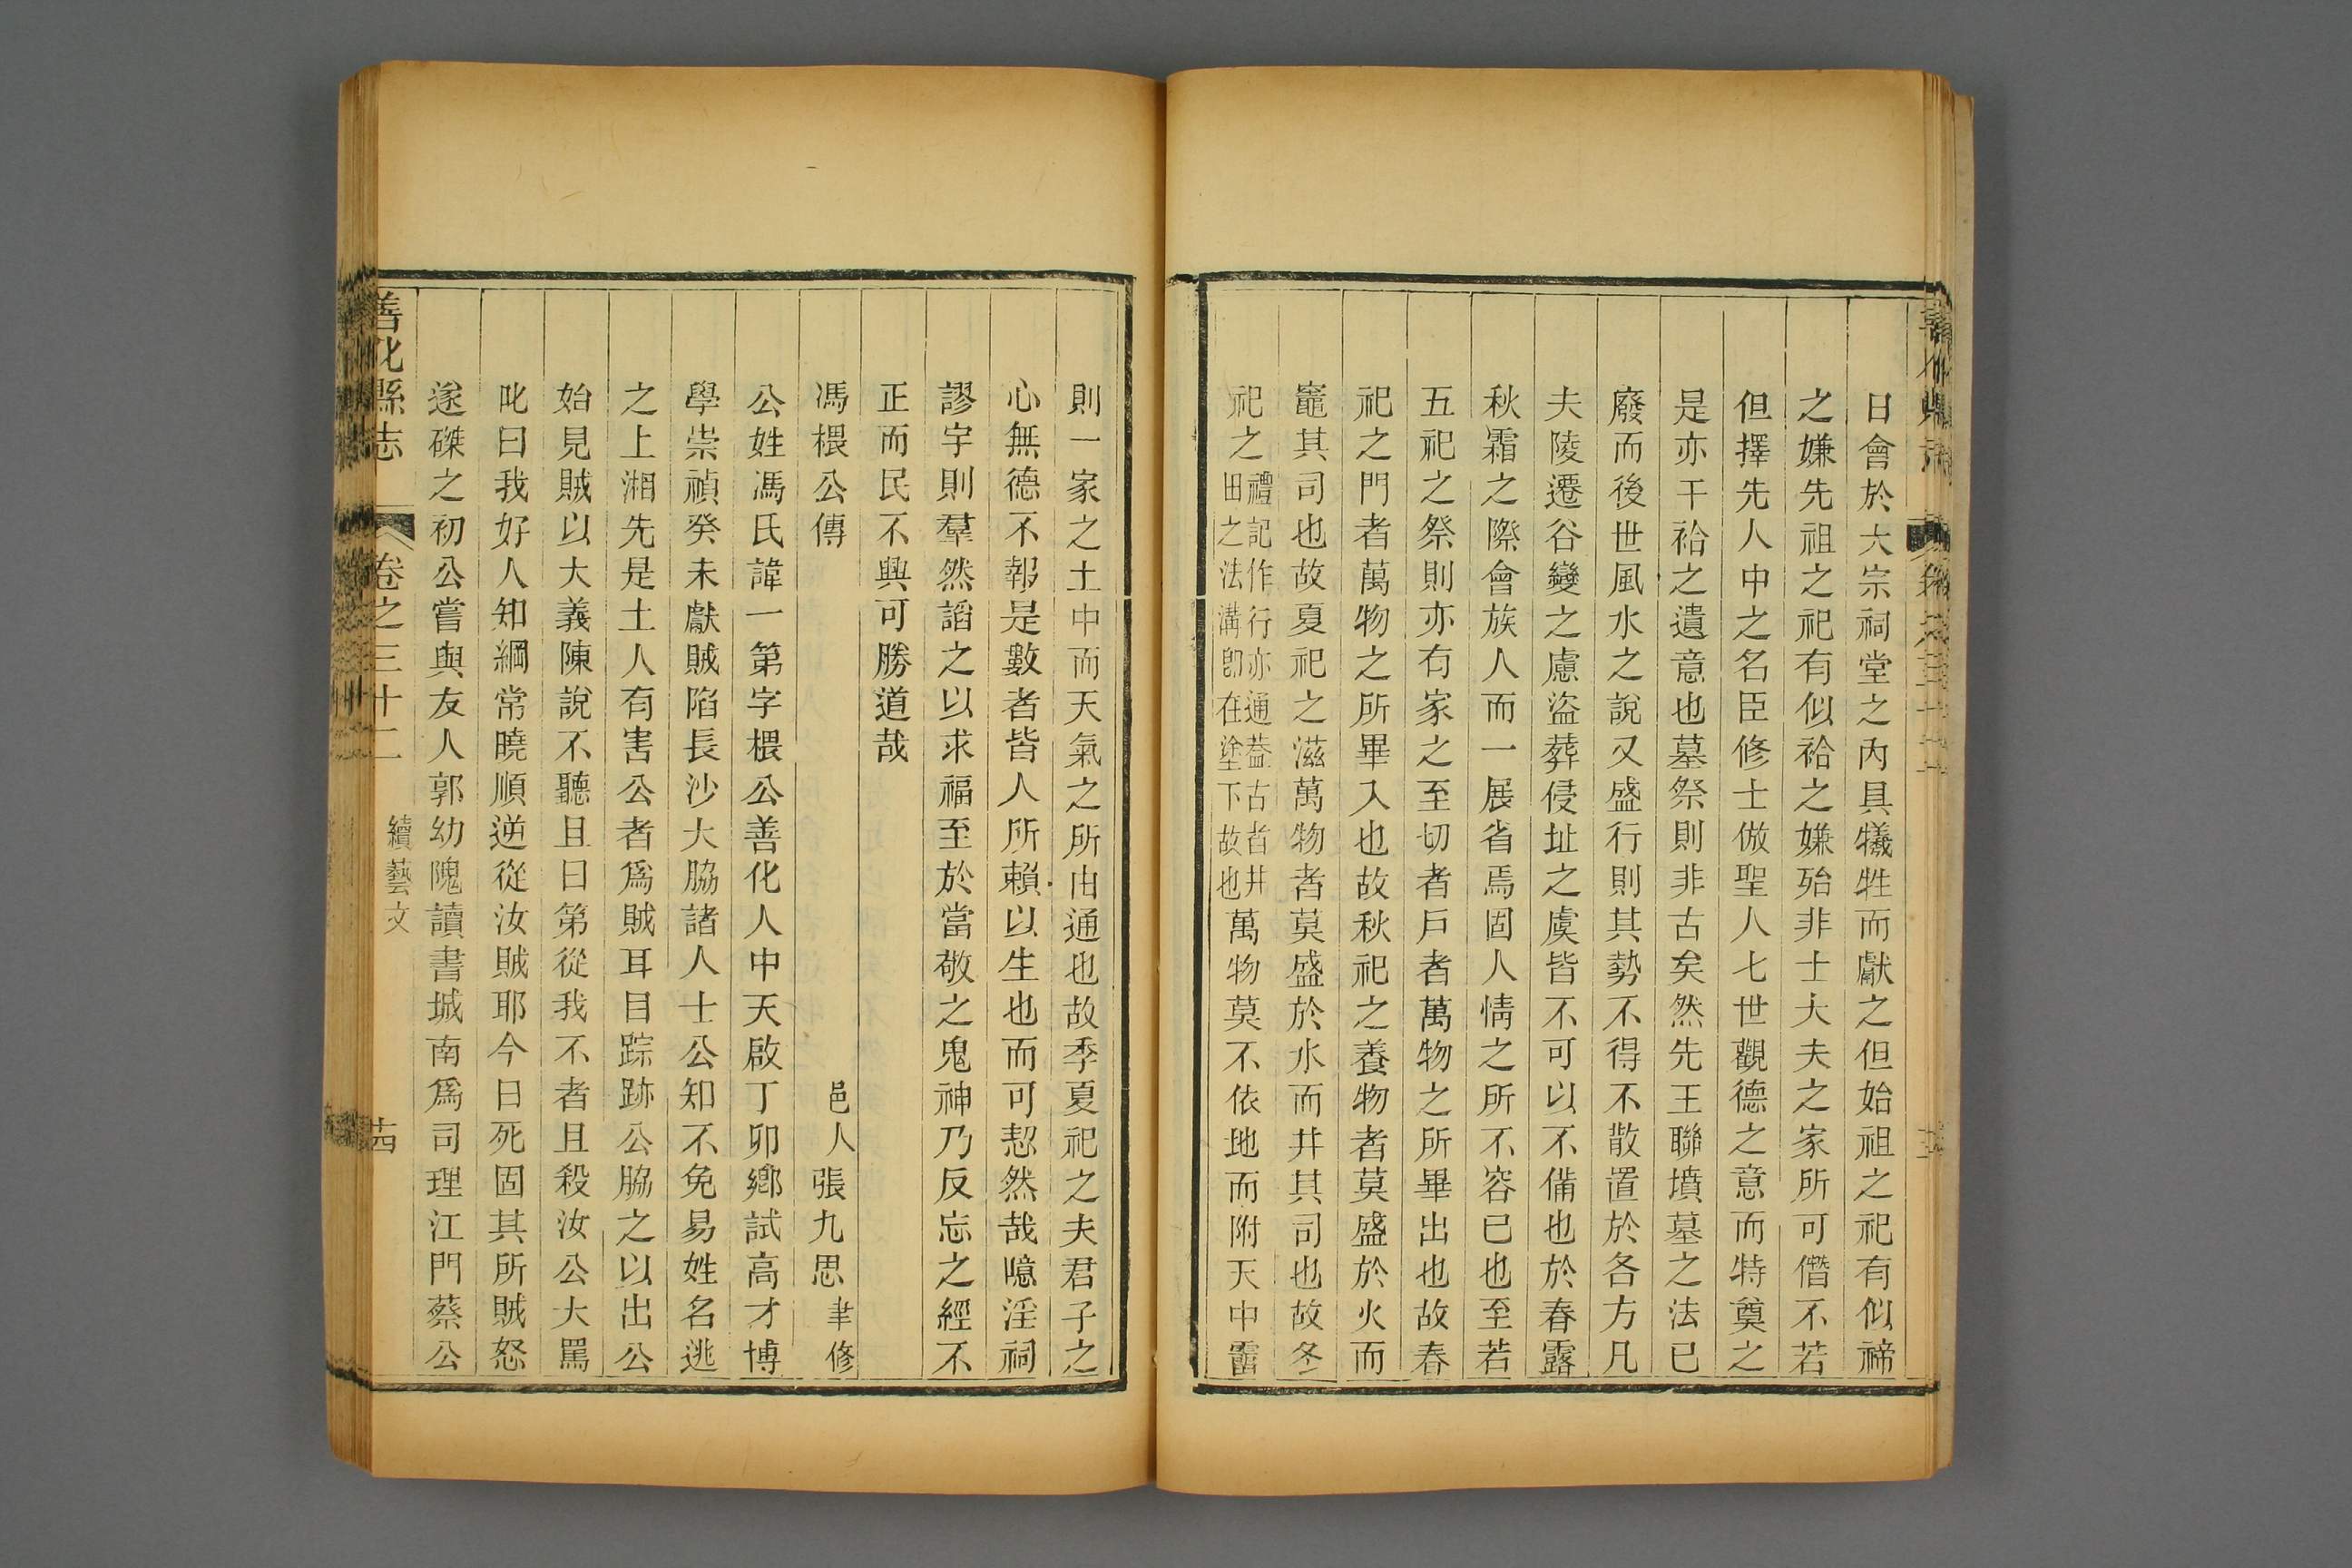 日會於大宗祠堂之內具犧牲而獻之但始祖之祀有似禘
之嫌先祖之祀有似祫之嫌殆非士大夫之家所可僭不若
但擇先人中之名臣修士倣聖人七世觀德之意而特奠之
是亦干祫之遺意也墓祭則非古矣然先王聯墳墓之法已
廢而後世風水之說又盛行則其勢不得不散置於各方凡
夫陵遷谷變之慮盜葬侵址之虞皆不可以不備也於春露
秋霜之際會族人而一展省焉固人情之所不容已也至若
五祀之祭則亦有家之至切者戶者萬物之所畢出也故春
祀之門者萬物之所畢入也故秋祀之養物者莫盛於火而
竈其司也故夏祀之滋萬物者莫盛於水而井其司也故冬
祀之禮記作行亦通葢古者井田之法溝卽在塗下故也萬物莫不依地而附天中霤
則一家之土中而天氣之所由通也故季夏祀之夫君子之
心無德不報是數者皆人所賴以生也而可恝然哉噫淫祠
謬宇則羣然諂之以求福至於當敬之鬼神乃反忘之經不
正而民不興可勝道哉
馮㮙公傳 邑人張九思聿修
公姓馮氏諱一第字㮙公善化人中天啟丁卯鄉試高才博
學崇禎癸未獻賊陷長沙大脇諸人士公知不免易姓名逃
之上湘先是土人有害公者爲賊耳目踪跡公脇之以出公
始見賊以大義陳說不聽且曰第從我不者且殺汝公大罵
叱曰我好人知綱常曉順逆從汝賊耶今日死固其所賊怒
遂磔之初公嘗與友人郭幼隗讀書城南爲司理江門蔡公
善化縣志 卷之三十二 續藝文 十四